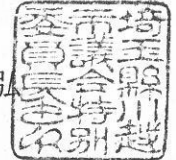 埼玉縣川越
市議会特別
委員長之印